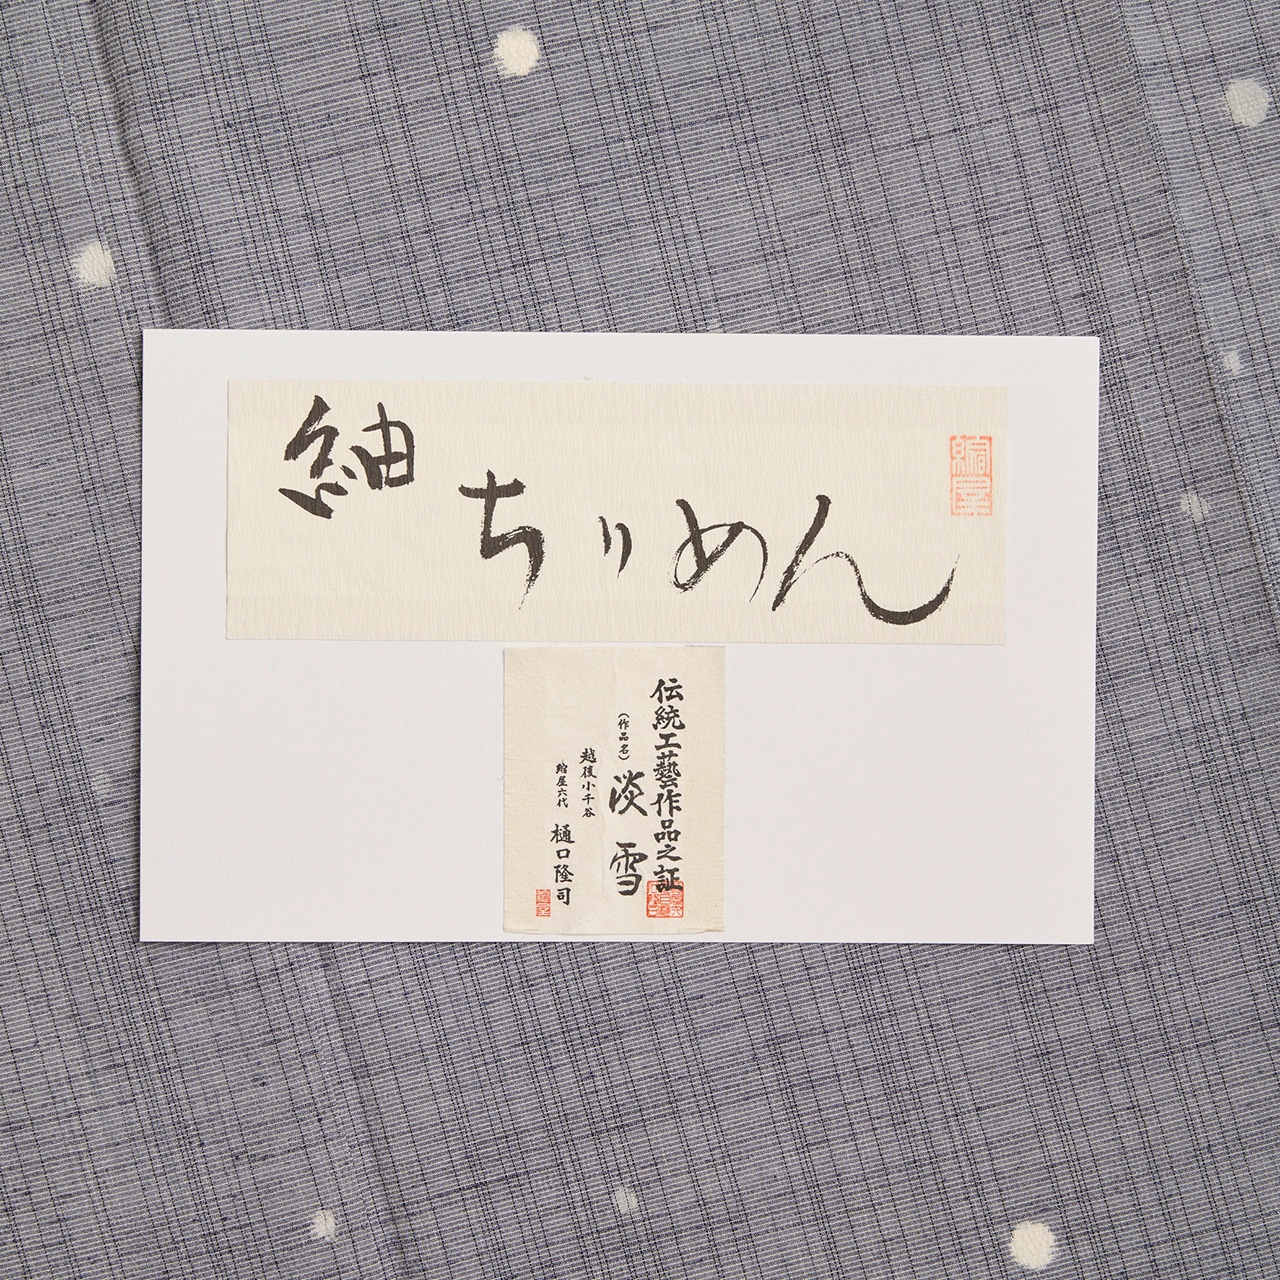 紬ちりめん
伝統工藝作品之証
(作品名)
淡雪
越後小千谷
繪屋六代
樋口隆司